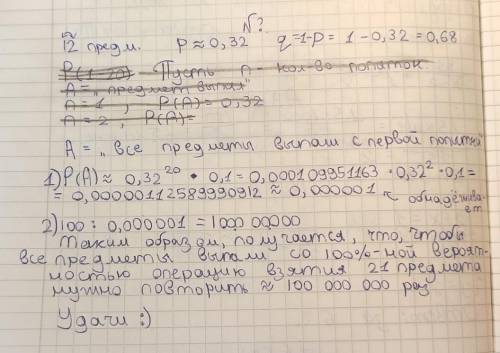 №?
12 предм. P ≈ 0,32 q=1-p = 1 - 0,32 = 0,68
Пусть A - кол-во попыток
A = „предмет выпал"
A = 1, P(A) = 0,32
A = 2, P(A) =
A = „все предметы выпали с первой попытки
1) P(A) ≈ 0,32²⁰ · 0,1 = 0,000109951163 · 0,32² · 0,1 =
= 0,00000112589990912 ≈ 0,000001 ↖ обнадёжива-
ет
2) 100 : 0,000001 = 100 000 000
Таким образом, получается, что, чтобы
все предметы выпали со 100%-ной вероят-
ностью операцию взятия 21 предмета
нужно повторить ≈ 100 000 000 раз
Удачи :)